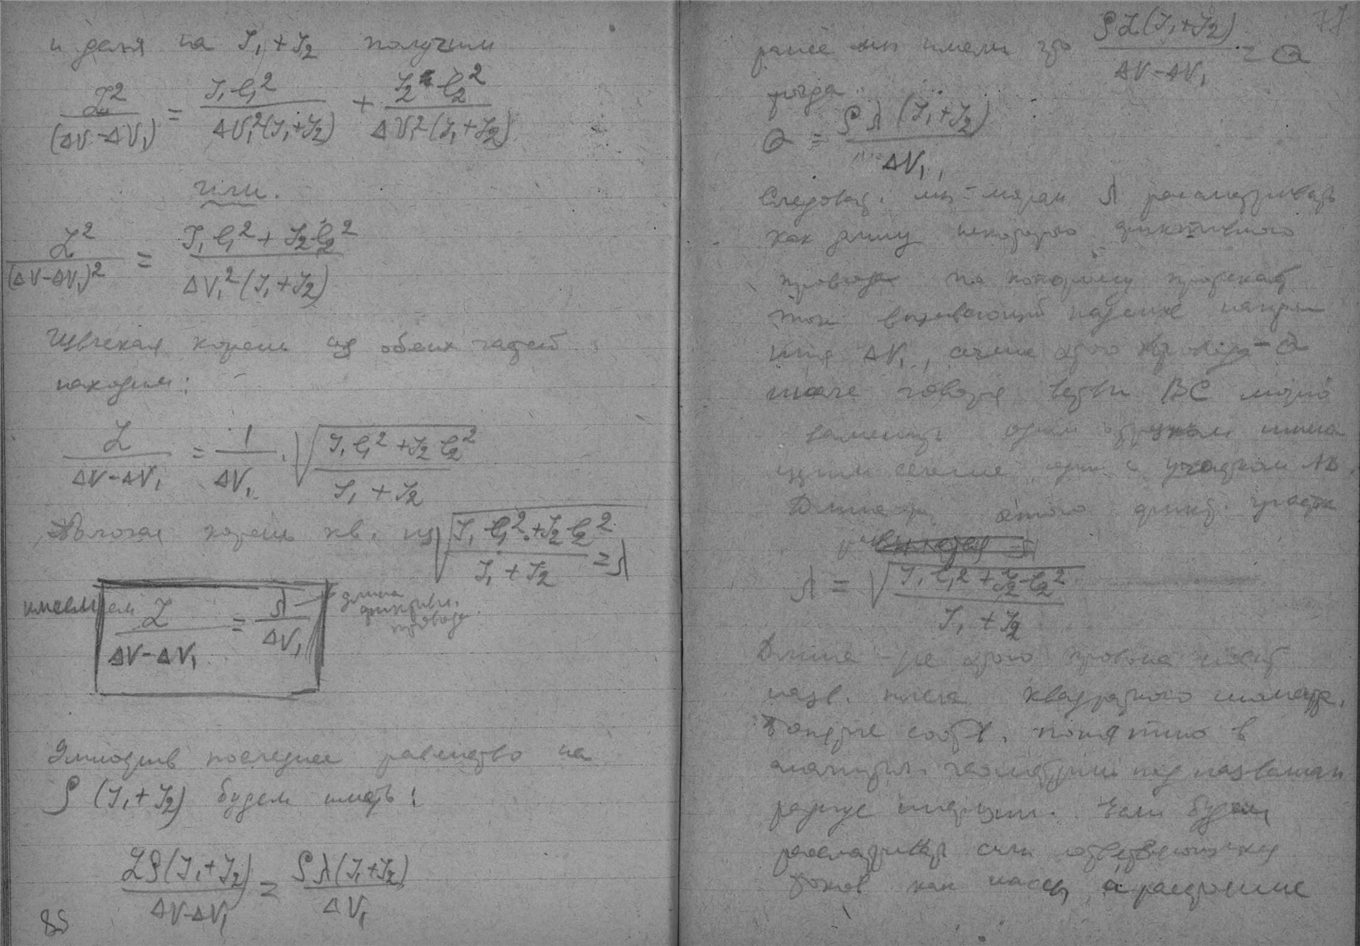 и деля на I₁+I₂ получим
L²/(ΔV-ΔV₁) = I₁l₁²/ΔV₁²(I₁+I₂) + I₂l₂²/ΔV₁²(I₁+I₂)
или.
L²/(ΔV-ΔV₁)² = I₁l₁²+I₂l₂²/ΔV₁²(I₁+I₂)
Извлекая корень из обеих частей
находим:
L/ΔV-ΔV₁ = 1/ΔV₁ · √(I₁l₁²+I₂l₂²/I₁+I₂)
Полагая корень кв. из √(I₁l₁²+I₂l₂²/I₁+I₂) = λ
имеем L/ΔV-ΔV₁ = λ/ΔV₁ длина
фиктивн.
провода
Умножив последнее равенство на
ρ(I₁+I₂) будем иметь:
Lρ(I₁+I₂)/ΔV-ΔV₁ = ρλ(I₁+I₂)/ΔV₁
85
77
ранее мы имели что ρL(I₁+I₂)/ΔV-ΔV₁ = Q
тогда
Q = ρλ(I₁+I₂)/ΔV₁
Следоват. мы можем λ рассматривать
как длину некоторого фиктивного
провода по которому протекает
ток вызывающий падение напряже
ния ΔV₁, сечение этого провода - Q
иначе говоря ветви BC можно
заменить одним
сечение один с участком AB.
Длина этого фикт. участка
λ = √(I₁l₁²+I₂l₂²/I₁+I₂)
Длина этого провода носит
назв. плеча квадратного момента,
понятию в
под названием
радиус инерции. Если будем
рассматривать силы ответвленных
токов как массы, а расстояние